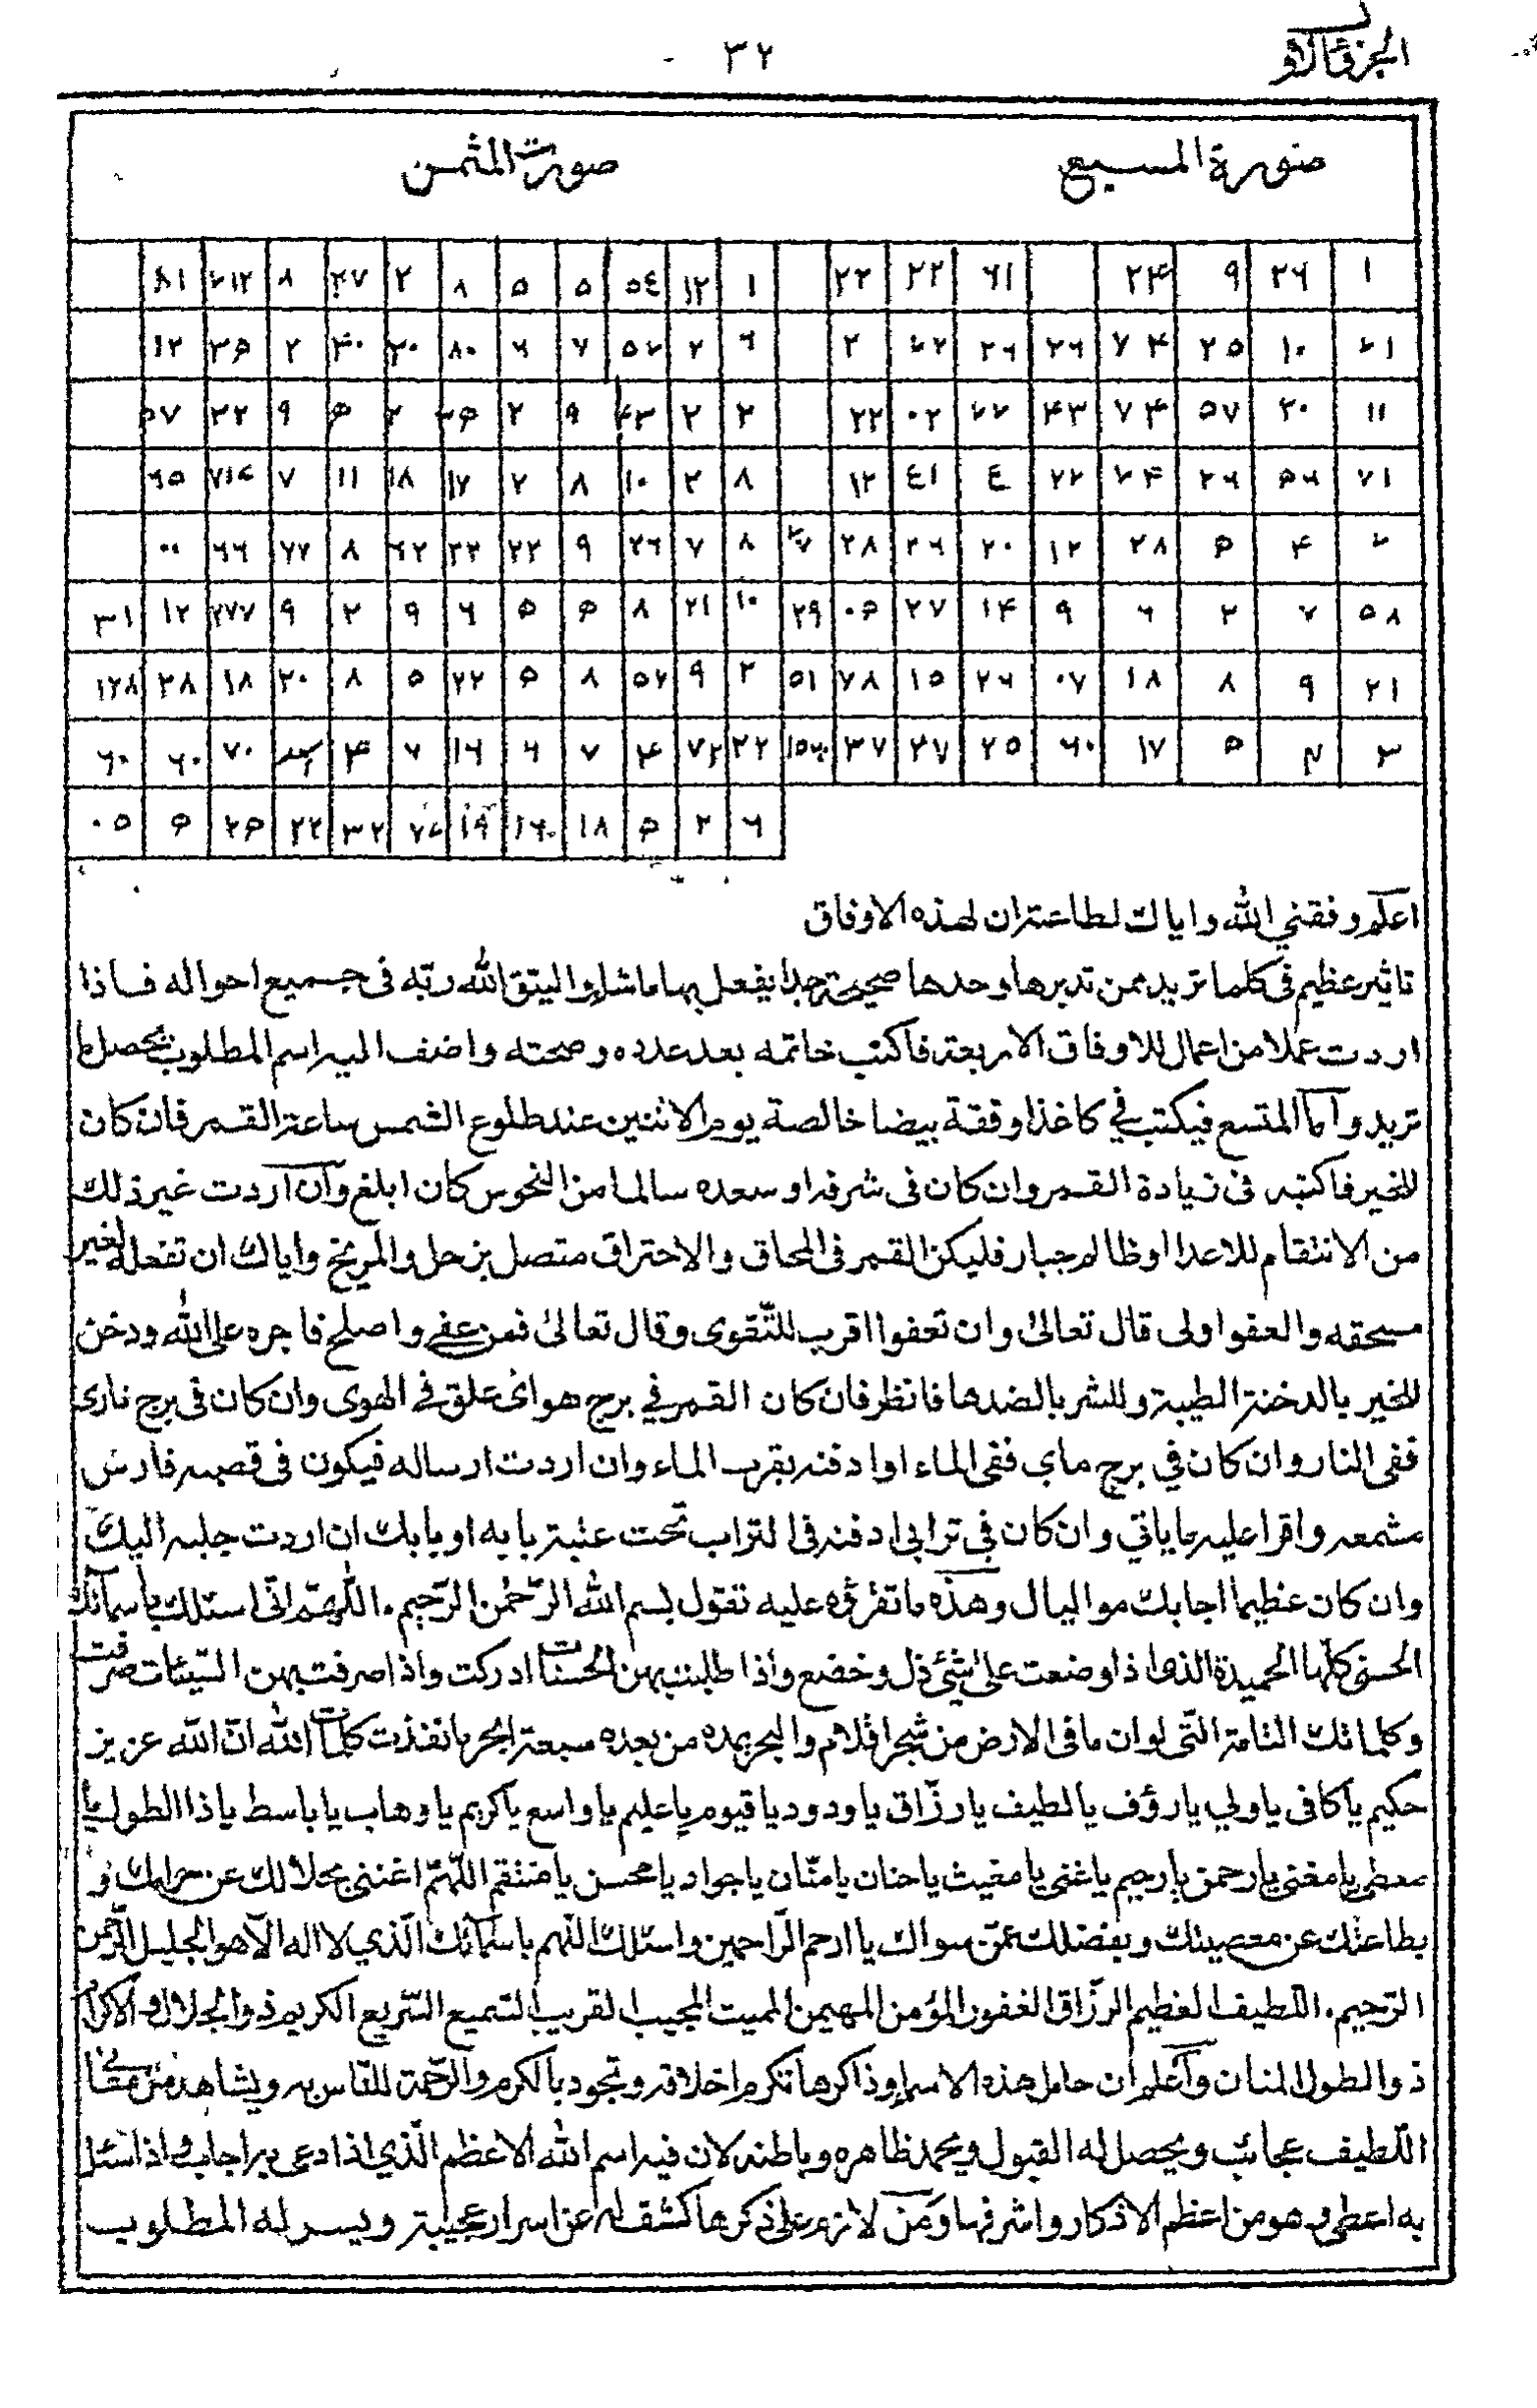 الجزء الاول
٣٢
صورة المسبع
صورة المثمن
١ ٢٦ ٩ ٢٤ ٦١ ٢٢ ٢٢ ١ ١٢ ٥٤ ٥ ٥ ٨ ٢ ٢٧ ٨ ٢١٢ ٨١
٢١ ١٠ ٢٥ ٧٤ ٢٦ ٢٦ ٢ ٦ ٢ ٧ ٦ ٨٠ ٢٠ ٤٠ ٢ ٣٥ ١٢
١١ ٢٠ ٥٧ ٧٤ ٤٣ ٠٢ ٢٢ ٢ ٢ ٤٣ ٩ ٢ ٣٥ ٢ ٥ ٩ ٢٢ ٥٧
٧١ ٥٦ ٢٦ ٢٤ ٢٢ ٤ ٤١ ١٢ ٨ ٢ ١٠ ٨ ٢ ١٧ ١٨ ١١ ٧ ٧١٤ ٦٥
٢ ٤ ٥ ٢٨ ١٢ ٢٠ ٢٦ ٢٨ ٨ ٧ ٢٦ ٩ ٢٢ ٢٢ ٦٢ ٨ ٧٢ ٦٦ ٠٠
٥٨ ٧ ٢ ٦ ٩ ١٤ ٢٧ ٠٥ ٢٩ ١٠ ٢١ ٨ ٥ ٥ ٦ ٩ ٢ ٩ ٢٧٧ ١٢ ٣١
٢١ ٩ ٨ ١٨ ٠٧ ٢٦ ١٥ ٧٨ ٥١ ٢ ٩ ٥٢ ٨ ٥ ٢٢ ٥ ٨ ٢٠ ١٨ ٢٨ ١٢٨
٣ ٥ ١٧ ٦٠ ٢٥ ٢٧ ٣٧ ٢٢ ٧٢ ٤ ٧ ٦ ١٦ ٧ ٤ ٧٠ ٦٠ ٦٠
٦ ٢ ٥ ١٨ ١٦٠ ١٩ ٧٤ ٣٢ ٢٢ ٢٥ ٥ ٠٥
اعلم وفقني الله واياك لطاعته ان لهذه الاوفاق
تاثير عظيم في كلما تريد ممن تدبرها وحدها صحيحة جدا يفعل بها ماشاء واليتق الله ربّه فى جميع احواله فاذا
اردت عملا من اعمال للاوفاق الاربعة فاكتب خاتمه بعد عدده وصحته واضف اليه اسم المطلوب يحصل ما
تريد وآما المتسع فيكتب في كاغذ اوفقة بيضا خالصة يوم الاثنين عند طلوع الشمس ساعة القمر فان كان
للخير فاكتبه فى زيادة القمر وان كان فى شرفه او سعده سالما من النحوس كان ابلغ وآن آردت غير ذلك
من الانتقام للاعدا او ظالم جبار فليكن القمر فى المحاق والاحتراق متصل بزحل والمريخ واياك ان تفعله لغير
مسحقه والعفو اولى قال تعالىٰ وان تعفوا اقرب للتّقوى وقال تعالىٰ فمن عفى واصلح فاجره على الله ودخن
للخير بالدخنة الطيبة وللشر بالضدها فانظر فان كان القمر في برج هوائى علق فى الهوى وان كان فى برج نارى
ففى النار وان كان في برج ماي ففى الماء او ادفنه بقرب الماء وان اردت ارساله فيكون فى قصبه فارس
مشمعه واقرا عليه ماياتي وان كان في ترابى ادفنه فى التراب تحت عتبة بابه او بابك ان اردت جلبه اليك
وان كان عظيما اجابك مو اليال وهذه ماتقرؤه عليه تقول بسم الله الرّحمٰن الرّحيم. اللّهمّ انّى اسئلك باسمآئك
الحسنى كلّها الحميدة الذى اذا وضعت على شئ ذل وخضع واذا طلبت بهن الحسنات ادركت واذا صرفت بهن السّيئات صرفت
وكلماتك التامة التّى لو ان مافى الارض من شجر اقلام والبحر يمده من بعده سبعة ابحر مانفذت كلمات الله انّ الله عزيز
حكيم ياكافى ياولي يارؤف يالطيف يارزّاق ياودود ياقيوم ياعليم ياواسع ياكريم ياوهاب ياباسط ياذا الطول يا
معطى يامغنى يارحمن يارحيم ياغنى يامغيث ياحنان يامنّان ياجواد يامحسن يامنتقم اللّهمّ اغننى بحلالك عن حرامك و
بطاعتك عن معصيتك وبفضلك عمّن سواك يا ارحم الرّاحمين واسئلك اللّهم باسمآئك الّذي لا اله الّا هو الجليل الرّحمن
الرّحيم. اللّطيف العظيم الرزّاق الغفور المؤمن المهيمن المميت المجيب القريب السّميع السّريع الكريم ذو الجلال والاكرام
ذو الطول المنان وآعلم ان حامل هذه الاسماء وذاكرها تكرم اخلاقه وتجود بالكرم والرّحمة للنّاس به ويشاهد من معنى
اللّطيف عجائب ويحصل له القبول ويحمد ظاهره وباطنه لان فيه اسم الله الاعظم الّذي اذا دعى به اجاب واذا سئل
به اعطى وهو من اعظم الاذكار واشرفها ومن لازم على ذكرها كشف له عن اسرار عجيبة ويسر له المطلوب